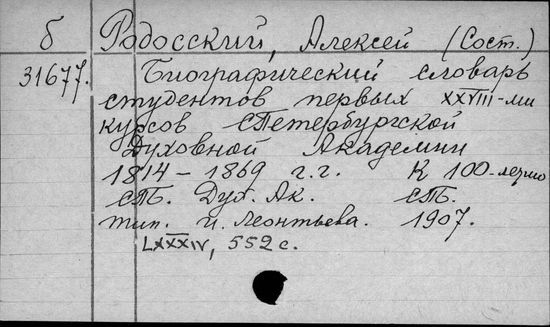 б Родосский, Алексей (Сост.)
31677. Биографический словарь
студентов первых XXVIII-ми
курсов СПетербургской
Духовной Академии
1814 – 1869 г.г. К 100-летию
СПб. Дух. Ак. СПб.
тип. И. Леонтьева. 1907.
LXXXIV, 552 с.